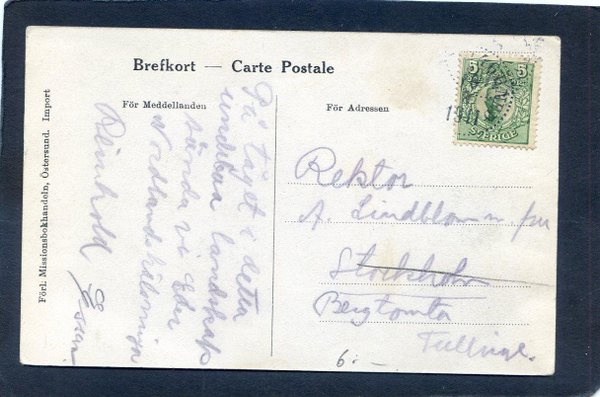 Brefkort — Carte Postale
För Meddelanden
På tåget i detta
underbara landskap
sända vi Eder
Nordlandshälsningar
Reinhold
För Adressen
Rektor
A. Lindblom m. fru
Stockholm
Bergtomta
Tullinge.
6:-
5 5
SVERIGE
1911
Förl: Missionsbokhandeln, Östersund. Import